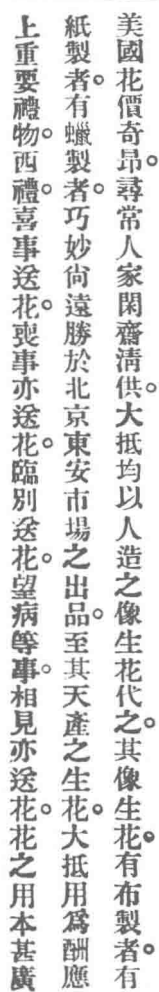 美國花價奇昂。尋常人家閑齋清供。大抵均以人造之像生花代之。其像生花。有布製者。有
紙製者。有蠟製者。巧妙尙遠勝於北京東安市場之出品。至其天產之生花。大抵用爲酬應
上重要禮物。西禮。喜事送花。喪事亦送花。臨別送花。望病等事。相見亦送花。花之用本甚廣